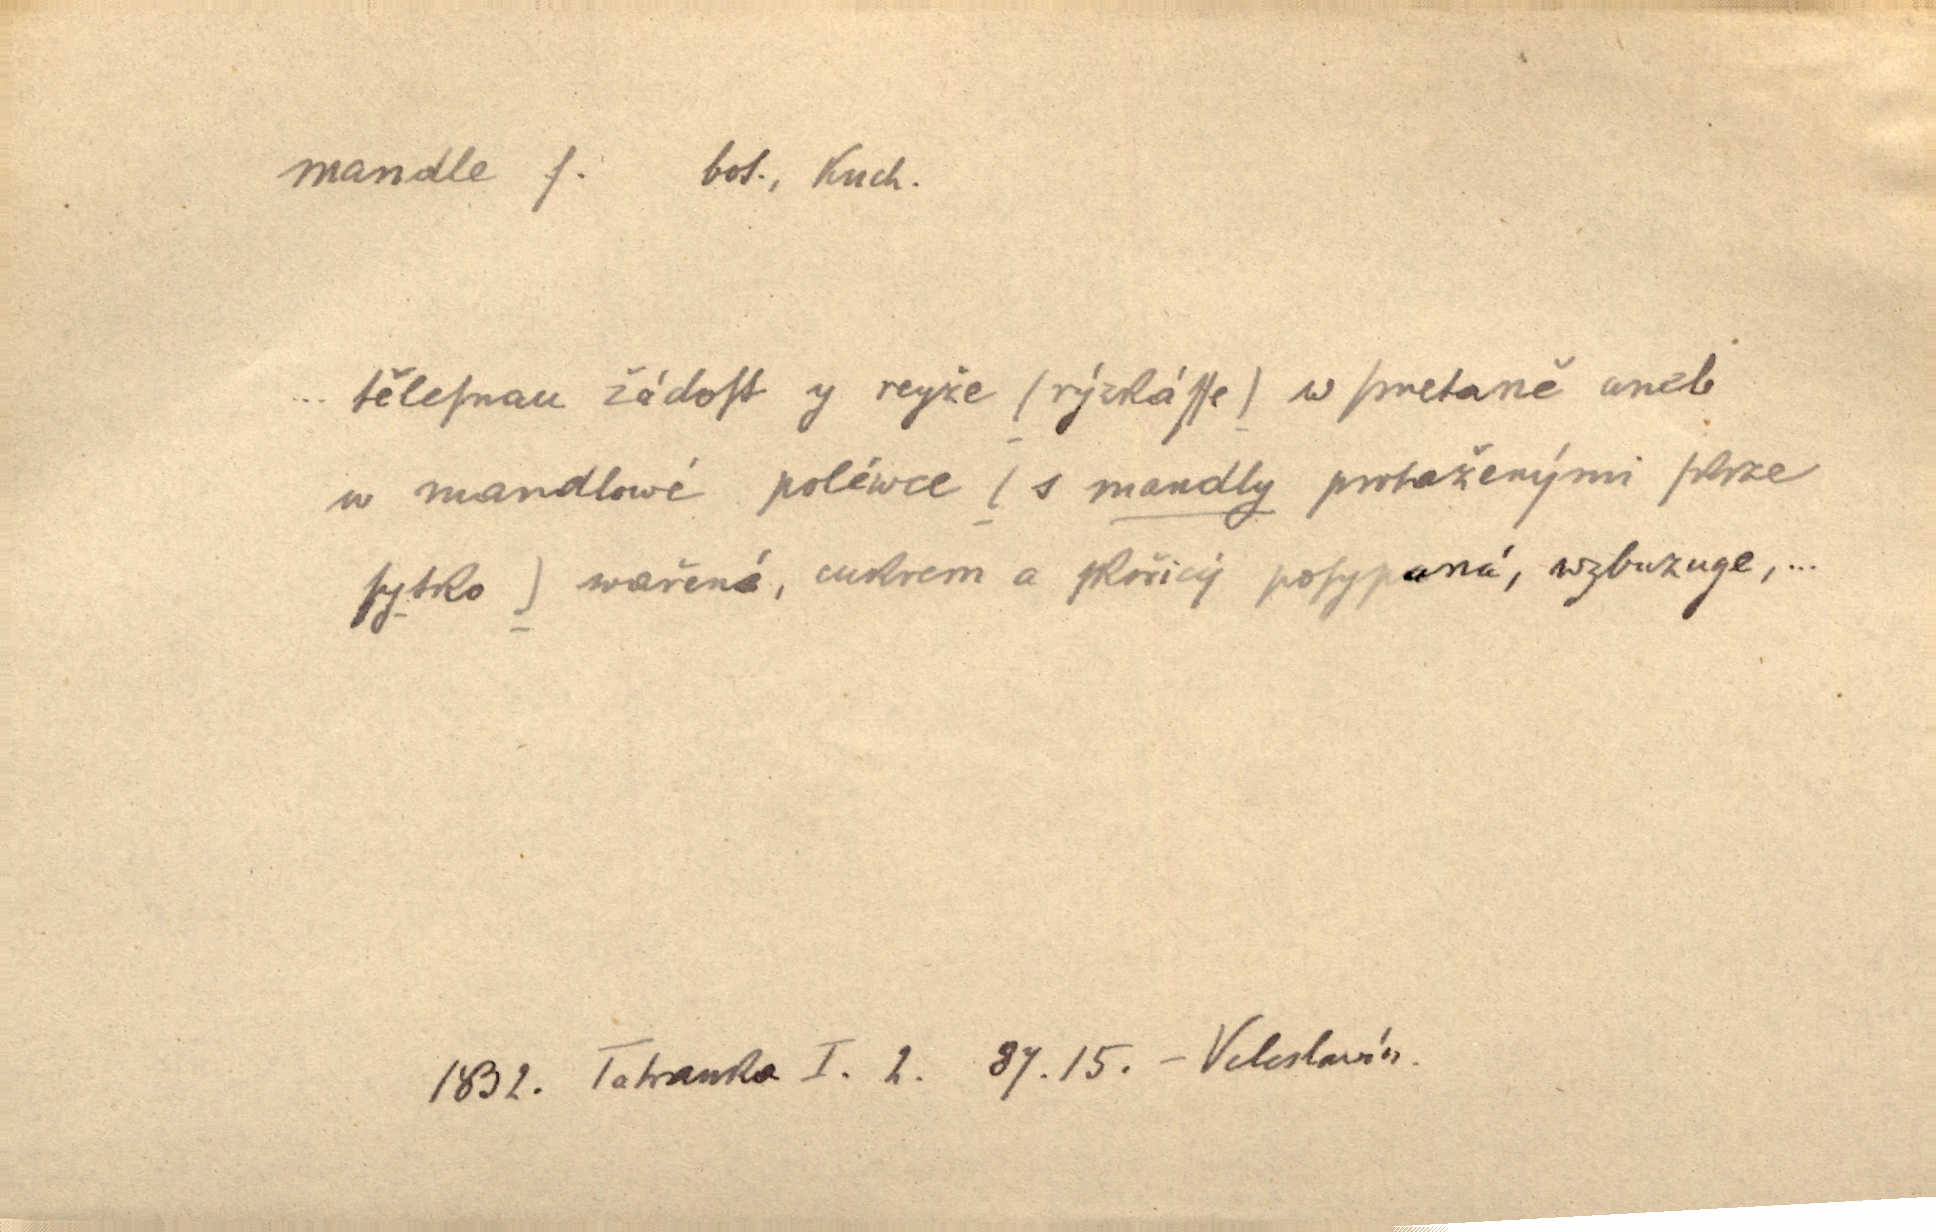 mandle f. bot., Kuch.
... tělesnau žádost y reyže (rýzkásse) w smetaně aneb
w mandlowé poléwce (s mandly protaženými skrze
sytko) wařená, cukrem a skořicý posypaná, wzbuzuge, ...
1832. Tatranka I. 2. 87.15. - Veleslavín.